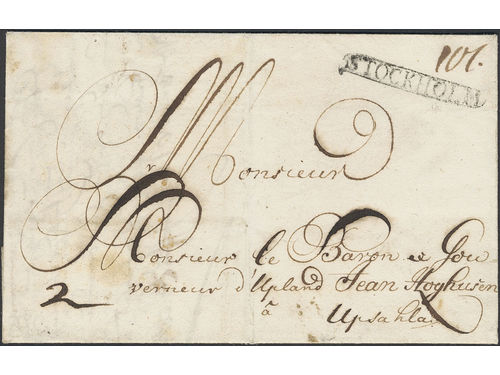 101.
STOCKHOLM
Monsieur
Monsieur le Baron et Gou
verneur d'Upland Jean Hoghusen
2
à Upsahla